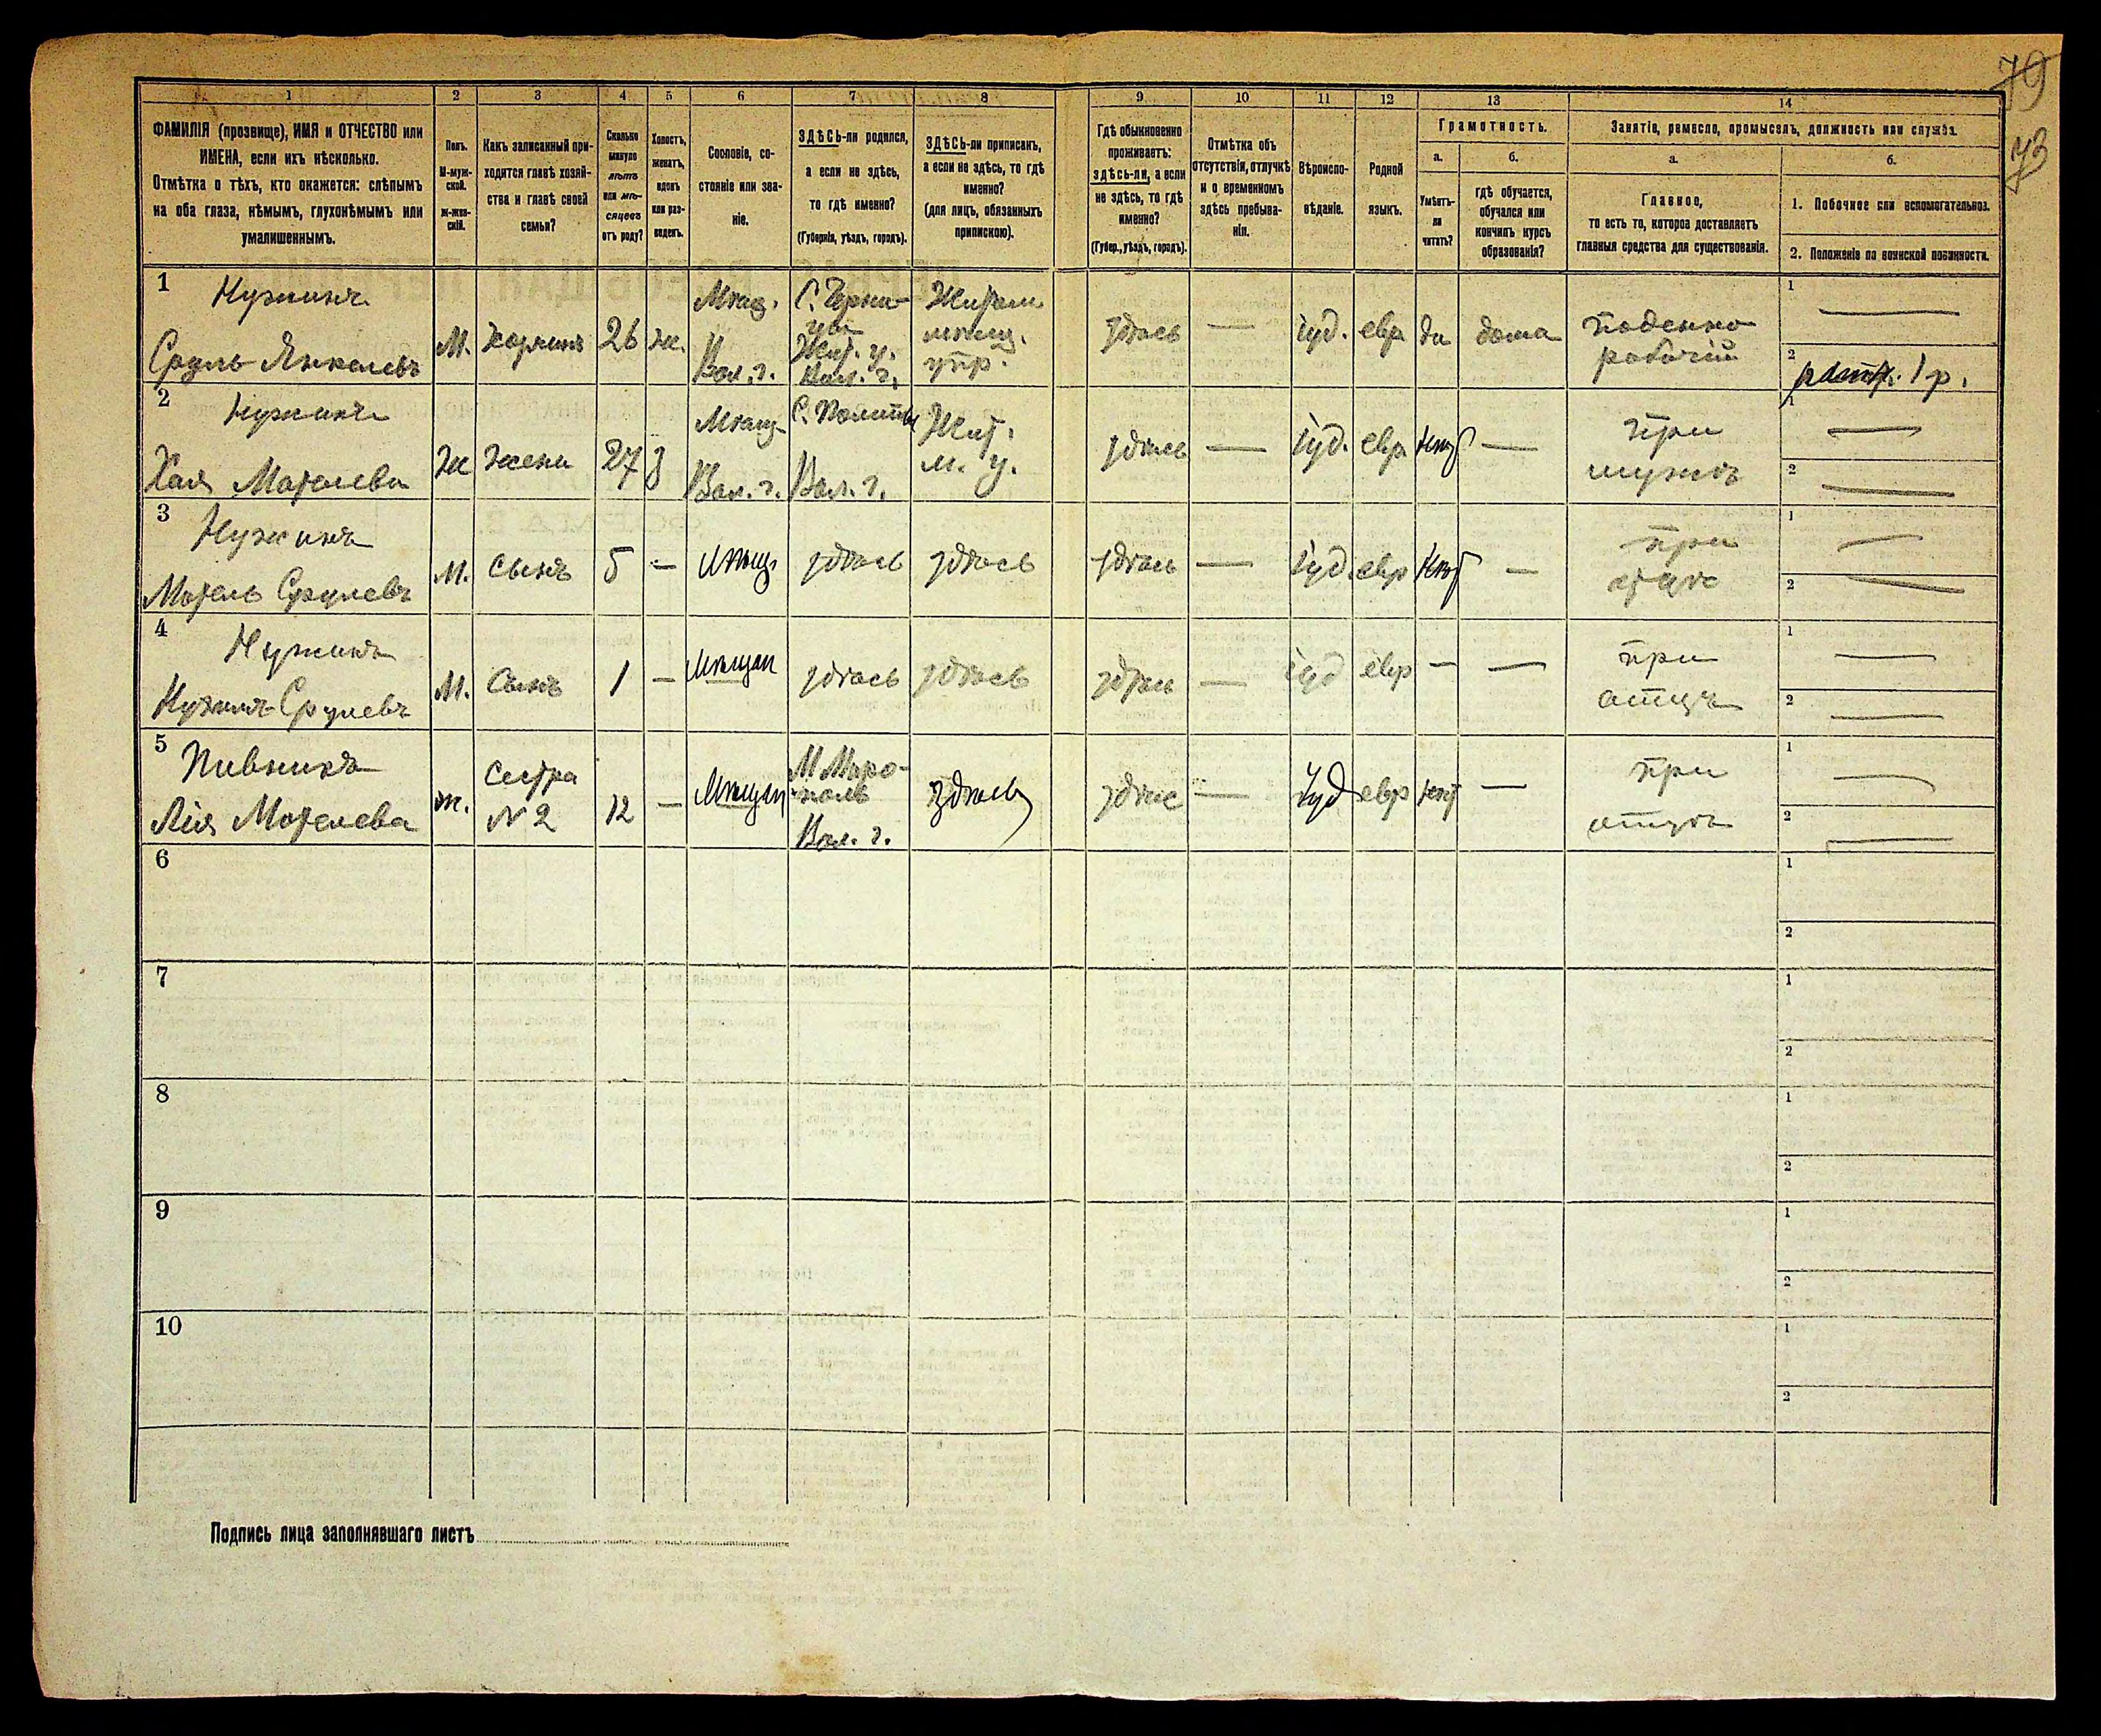 79
73
1
2
3
4
5
6
7
8
9
10
11
12
13
14
ФАМИЛІЯ (прозвище), ИМЯ и ОТЧЕСТВО или
ИМЕНА, если ихъ нѣсколько.
Отмѣтка о тѣхъ, кто окажется: слѣпымъ
на оба глаза, нѣмымъ, глухонѣмымъ или
умалишеннымъ.
Полъ.
М-муж-
ской.
ж-жен-
скій.
Какъ записанный при-
ходится главѣ хозяй-
ства и главѣ своей
семьи?
Сколько
минуло
лѣтъ
или мѣ-
сяцевъ
отъ роду?
Холостъ,
женатъ,
вдовъ
или раз-
веденъ.
Сословіе, со-
стояніе или зва-
ніе.
ЗДѢСЬ-ли родился,
а если не здѣсь,
то гдѣ именно?
(Губернія, уѣздъ, городъ).
ЗДѢСЬ-ли приписанъ,
а если не здѣсь, то гдѣ
именно?
(для лицъ, обязанныхъ
припискою).
Гдѣ обыкновенно
проживаетъ:
здѣсь-ли, а если
не здѣсь, то гдѣ
именно?
(Губер., уѣздъ, городъ).
Отмѣтка объ
отсутствіи, отлучкѣ
и о временномъ
здѣсь пребыва-
ніи.
Вѣроиспо-
вѣданіе.
Родной
языкъ.
Грамотность.
а.
б.
Умѣетъ-
ли
читать?
гдѣ обучается,
обучался или
кончилъ курсъ
образованія?
Занятіе, ремесло, промыселъ, должность или служба.
а.
б.
Главное,
то есть то, которое доставляетъ
главныя средства для существованія.
1. Побочное или вспомогательное.
2. Положеніе по воинской повинности.
1
Нужникъ
Сруль Янкелевъ
М.
хозяинъ
26
ж.
Мѣщ.
Вол. г.
Жит. у.
Вол. г.
Житом
мѣщ.
упр.
здѣсь
—
іуд.
евр
да
дома
поденно
рабочій
1
—
2
1 р.
2
Нужникъ
Хая Мотелева
Ж
жена
27
з
Мѣщ
Вол. г.
Вол. г.
Жит.
м. у.
здѣсь
—
іуд.
евр
нѣт
—
при
мужѣ
1
—
2
—
3
Нужникъ
Мотель Срулевъ
М.
сынъ
5
—
мѣщ
здѣсь
здѣсь
здѣсь
—
іуд.
евр
нѣт
—
при
отцѣ
1
—
2
—
4
Нужникъ
Срулевъ
М.
Сынъ
1
—
Мѣщан
здѣсь
здѣсь
здѣсь
—
іуд
евр
—
—
при
отцѣ
1
—
2
—
5
Пивникъ
Лея Мотелева
ж.
Сестра
№ 2
12
—
Мѣщан
М Миро-
поль
Вол. г.
здѣсь
здѣс
—
Іуд
евр
нѣт
—
при
отцѣ
1
—
2
—
6
1
2
7
1
2
8
1
2
9
1
2
10
1
2
Подпись лица заполнявшаго листъ